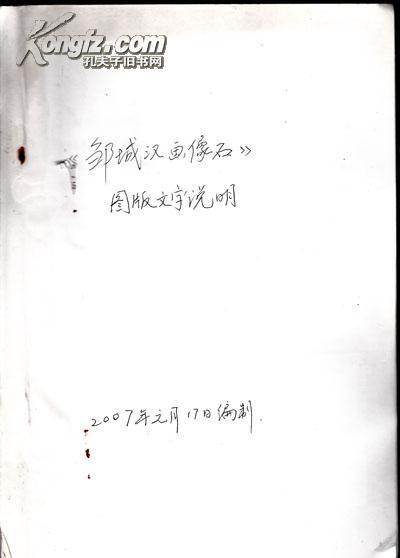 Kongfz.com
孔夫子旧书网
邹城汉画像石》
图版文字说明
2007年元月17日编制.